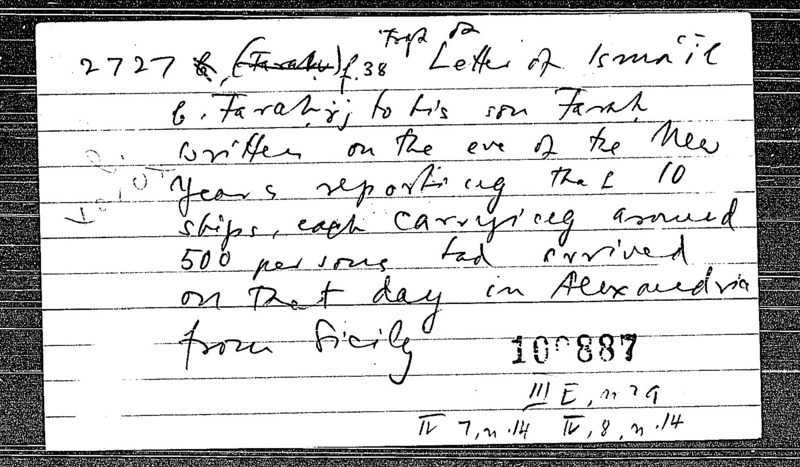 2727 f.38 Letter of Ismā'īl
b. Farah, to his son Farah
written on the eve of the New
Years reporting that 10
ships, each carrying around
500 persons had arrived
on that day in Alexandria
from Sicily
100887
III E, n 29
IV 7, n.14 IV, 8, n.14